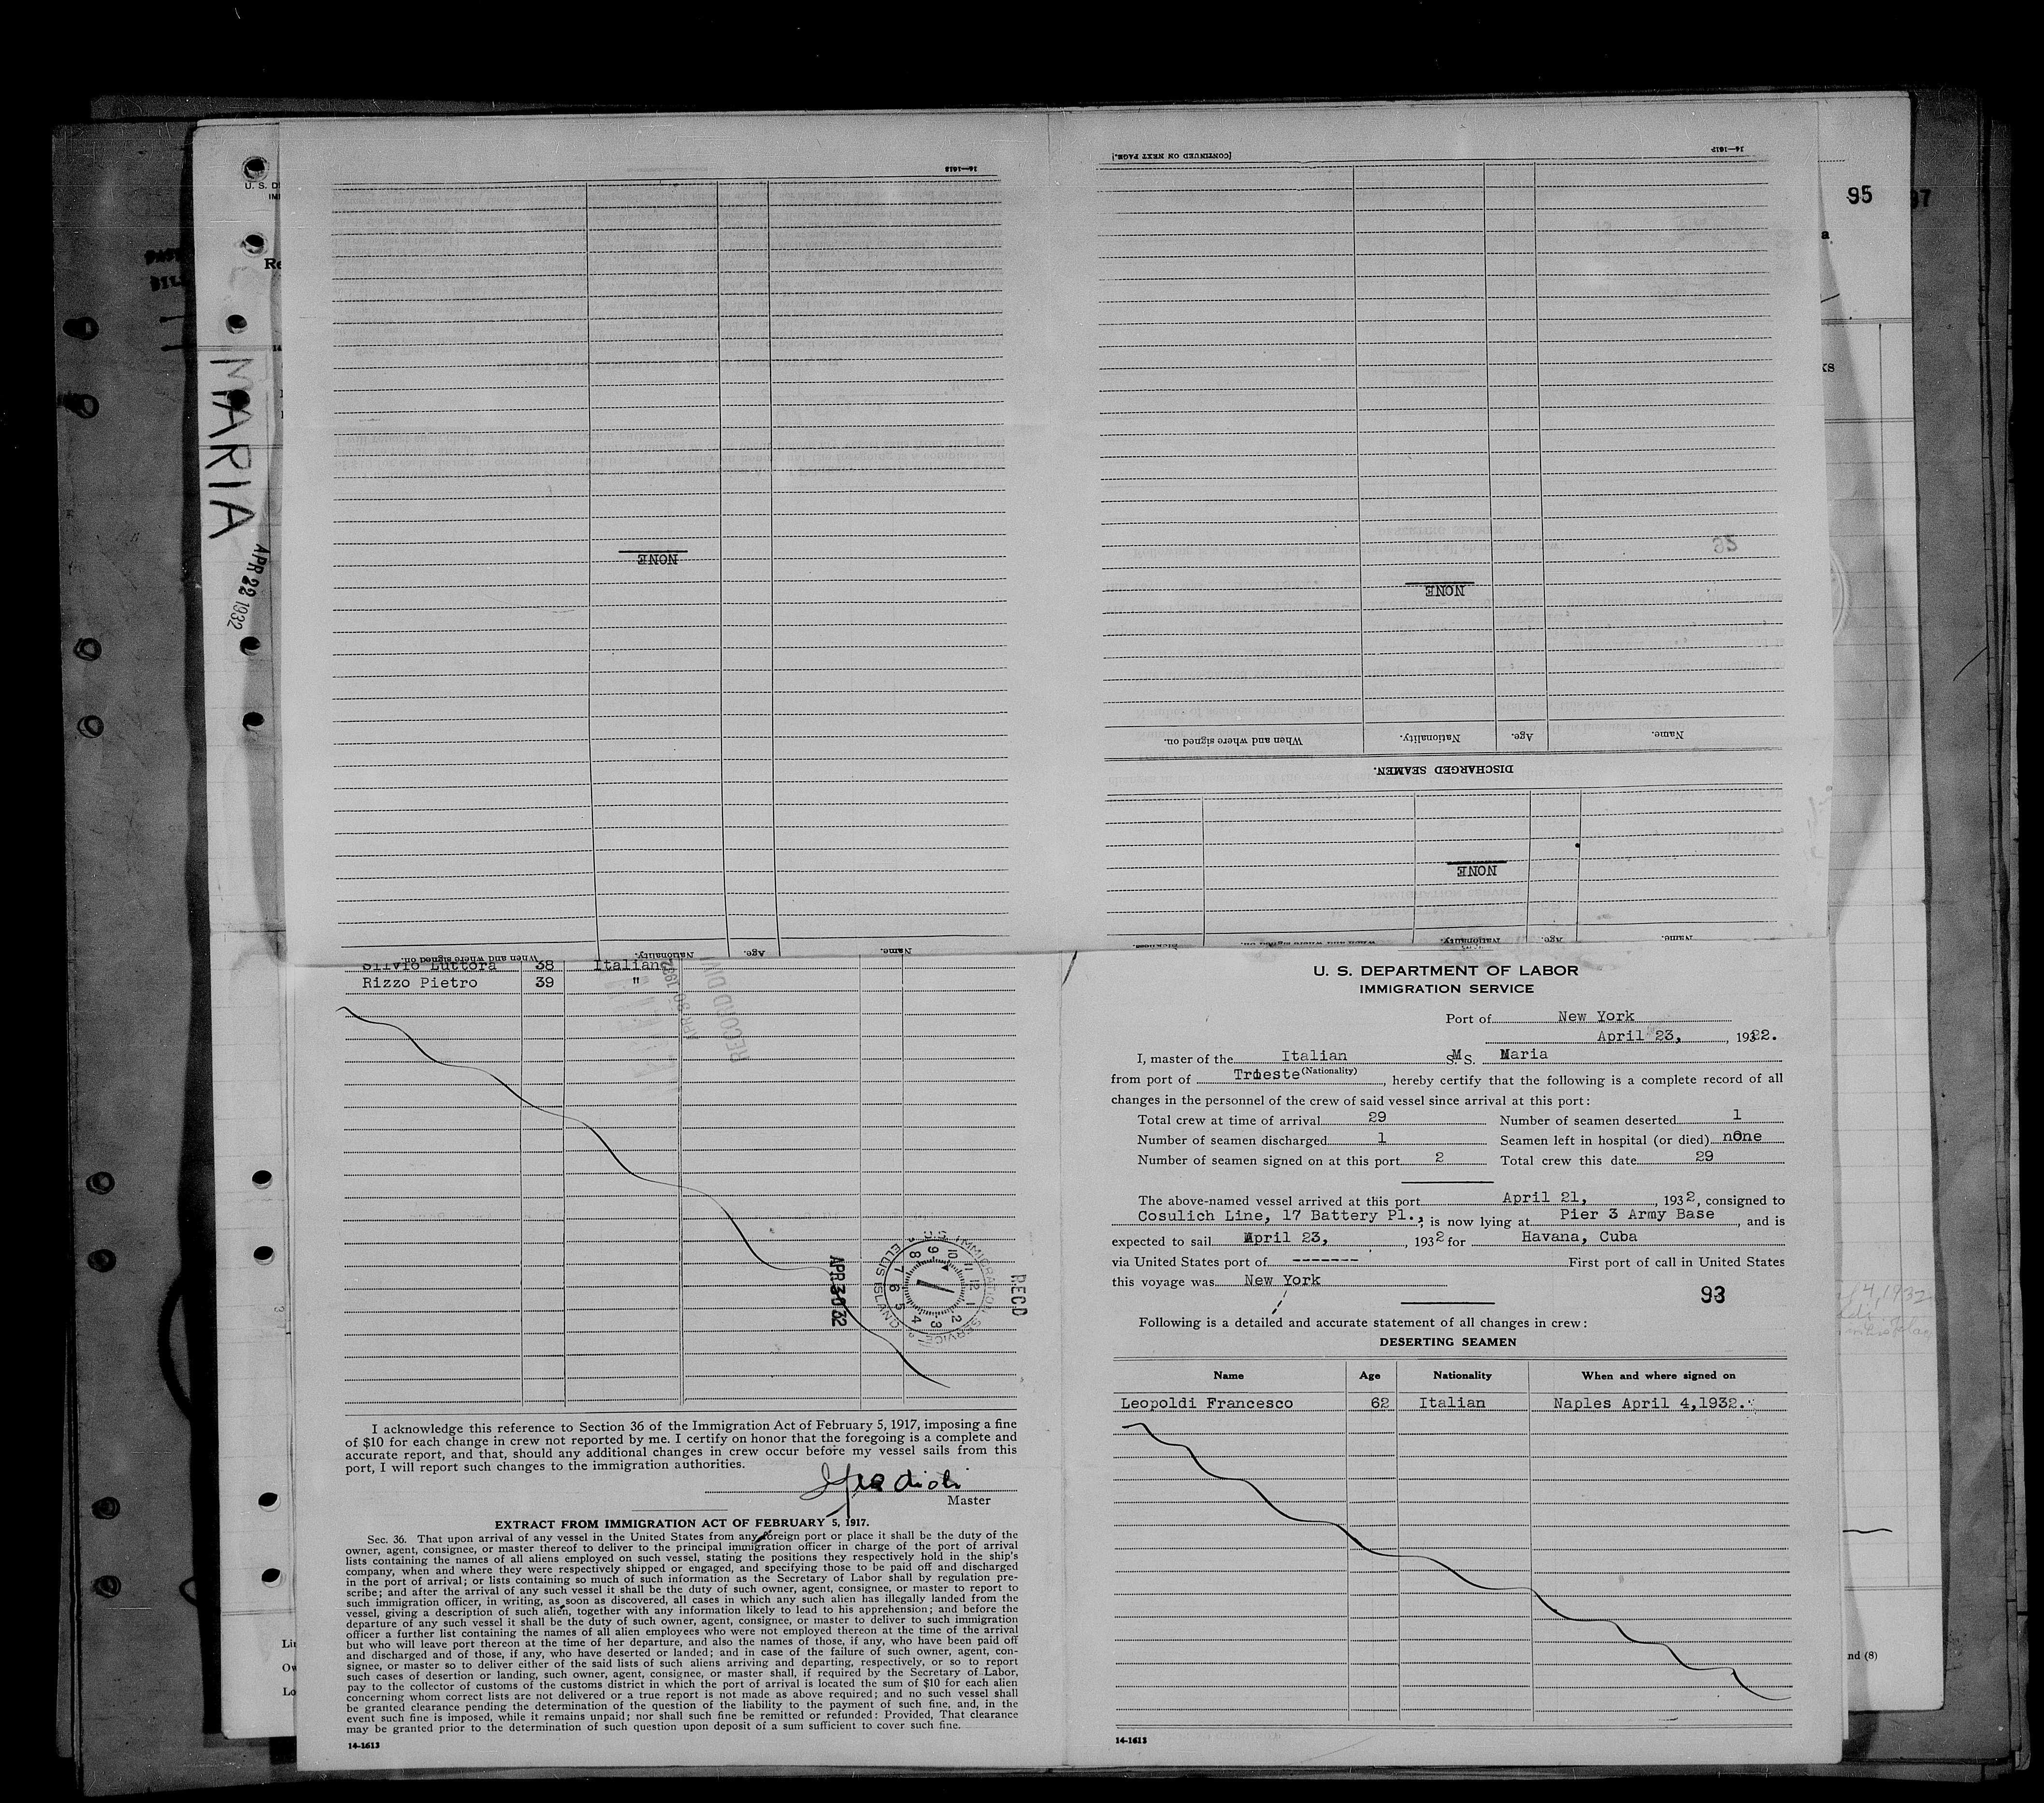 95
97
U. S. D
Re
MARIA
APR 22 1932
14—1613
NONE
When and where signed on.
Nationality.
Age.
Name.
[CONTINUED ON NEXT PAGE.]
14—1613
NONE
When and where signed on.
Nationality.
Age.
Name.
DISCHARGED SEAMEN.
NONE
When and where signed on.
Nationality.
Age.
Name.
Silvio Luttora 38 Italian
Rizzo Pietro 39 "
RECORD DIV
APR 30 1932
APR 30 32
U.S. IMMIGRATION SERVICE
ELLIS ISLAND
REC'D
I acknowledge this reference to Section 36 of the Immigration Act of February 5, 1917, imposing a fine
of $10 for each change in crew not reported by me. I certify on honor that the foregoing is a complete and
accurate report, and that, should any additional changes in crew occur before my vessel sails from this
port, I will report such changes to the immigration authorities.
Master
EXTRACT FROM IMMIGRATION ACT OF FEBRUARY 5, 1917.
Sec. 36. That upon arrival of any vessel in the United States from any foreign port or place it shall be the duty of the
owner, agent, consignee, or master thereof to deliver to the principal immigration officer in charge of the port of arrival
lists containing the names of all aliens employed on such vessel, stating the positions they respectively hold in the ship's
company, when and where they were respectively shipped or engaged, and specifying those to be paid off and discharged
in the port of arrival; or lists containing so much of such information as the Secretary of Labor shall by regulation pre-
scribe; and after the arrival of any such vessel it shall be the duty of such owner, agent, consignee, or master to report to
such immigration officer, in writing, as soon as discovered, all cases in which any such alien has illegally landed from the
vessel, giving a description of such alien, together with any information likely to lead to his apprehension; and before the
departure of any such vessel it shall be the duty of such owner, agent, consignee, or master to deliver to such immigration
officer a further list containing the names of all alien employees who were not employed thereon at the time of the arrival
but who will leave port thereon at the time of her departure, and also the names of those, if any, who have been paid off
and discharged and of those, if any, who have deserted or landed; and in case of the failure of such owner, agent, con-
signee, or master so to deliver either of the said lists of such aliens arriving and departing, respectively, or so to report
such cases of desertion or landing, such owner, agent, consignee, or master shall, if required by the Secretary of Labor,
pay to the collector of customs of the customs district in which the port of arrival is located the sum of $10 for each alien
concerning whom correct lists are not delivered or a true report is not made as above required; and no such vessel shall
be granted clearance pending the determination of the question of the liability to the payment of such fine, and, in the
event such fine is imposed, while it remains unpaid; nor shall such fine be remitted or refunded: Provided, That clearance
may be granted prior to the determination of such question upon deposit of a sum sufficient to cover such fine.
14-1613
U. S. DEPARTMENT OF LABOR
IMMIGRATION SERVICE
Port of New York
April 23, 1932.
I, master of the Italian M S. Maria
(Nationality)
from port of Trieste, hereby certify that the following is a complete record of all
changes in the personnel of the crew of said vessel since arrival at this port:
Total crew at time of arrival 29 Number of seamen deserted 1
Number of seamen discharged 1 Seamen left in hospital (or died) none
Number of seamen signed on at this port 2 Total crew this date 29
The above-named vessel arrived at this port April 21, 1932, consigned to
Cosulich Line, 17 Battery Pl., is now lying at Pier 3 Army Base, and is
expected to sail April 23, 1932 for Havana, Cuba
via United States port of ------- First port of call in United States
this voyage was New York
93
Following is a detailed and accurate statement of all changes in crew:
DESERTING SEAMEN
Name Age Nationality When and where signed on
Leopoldi Francesco 62 Italian Naples April 4,1932.
14-1613
nd (8)